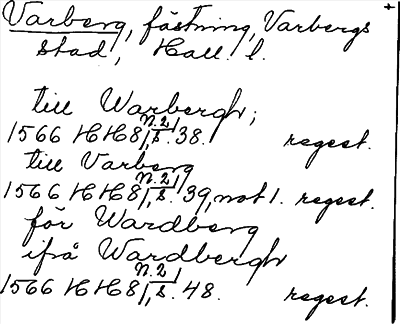 Varberg, fästning, Varbergs +
stad, Hall. l.
till Warbergh;
1566 HH 8/1, n. 2/, s. 38. regest.
till Varberg
1566 HH 8/1, n. 2/, s. 39, not 1. regest.
för Wardberg
ifrå Wardbergh
1566 HH 8/1, n. 2/, s. 48. regest.